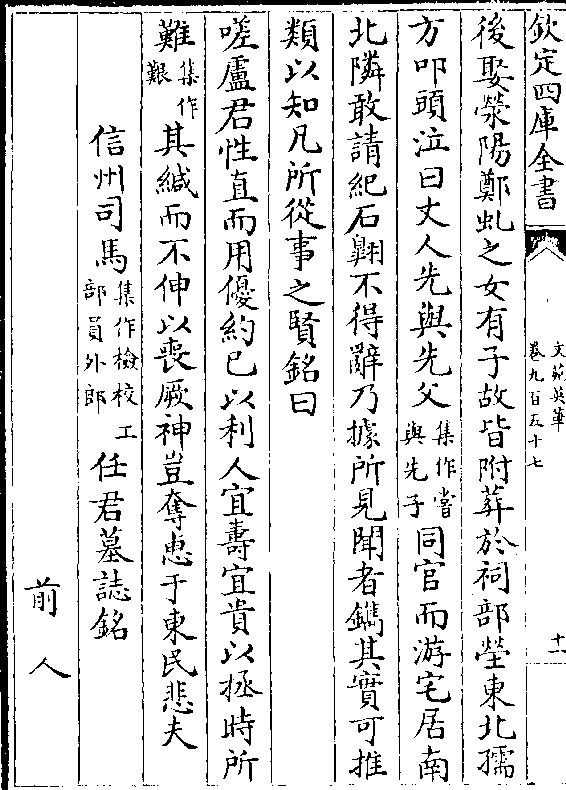 欽定四庫全書
文苑英華
卷九百五十七
十一
後娶滎陽鄭虬之女有子故皆附葬於祠部塋東北孺
方叩頭泣曰丈人先與先父集作嘗與先子同官而游宅居南
北隣敢請紀石翺不得辭乃據所見聞者鐫其實可推
類以知凡所從事之賢銘曰
嗟盧君性直而用優約已以利人宜壽宜貴以拯時所
難集作艱其緘而不伸以喪厥神豈奪惠于東民悲夫
信州司馬集作檢校工部員外郎任君墓誌銘
前人